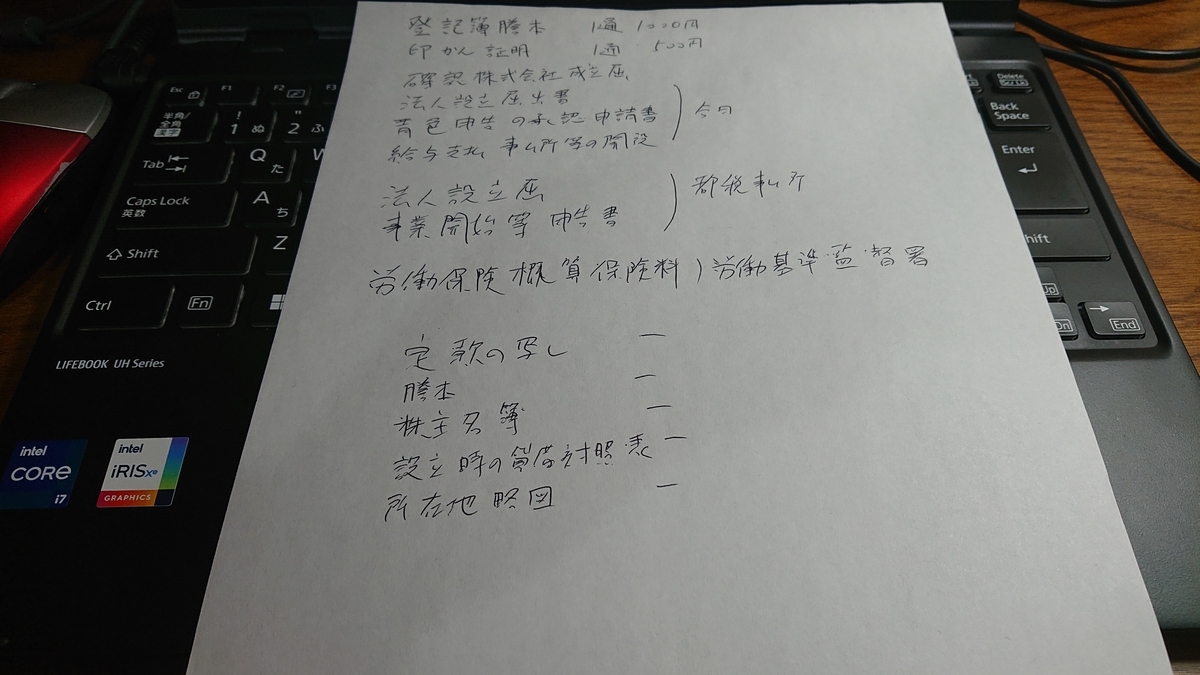 登記簿謄本 1通 1000円
印かん証明 1通 500円
確認株式会社成立届
法人設立届出書
青色申告の承認申請書 今月
給与支払事ム所等の開設
法人設立届 都税事ム所
事業開始等申告書
労働保険概算保険料 ) 労働基準監督署
定款の写し 一
謄本 一
株主名簿 一
設立時の貸借対照表 一
所在地略図 一
Esc
F1
F2
F3
半角/全角 漢字
! 1 ぬ
" 2 ふ
Tab
Q た
W
Caps Lock 英数
A ち
Shift
Z
Ctrl
Fn
LIFEBOOK UH Series
intel CORE i7
intel iRIS Xe GRAPHICS
Delete
Back Space
Enter
hift
End